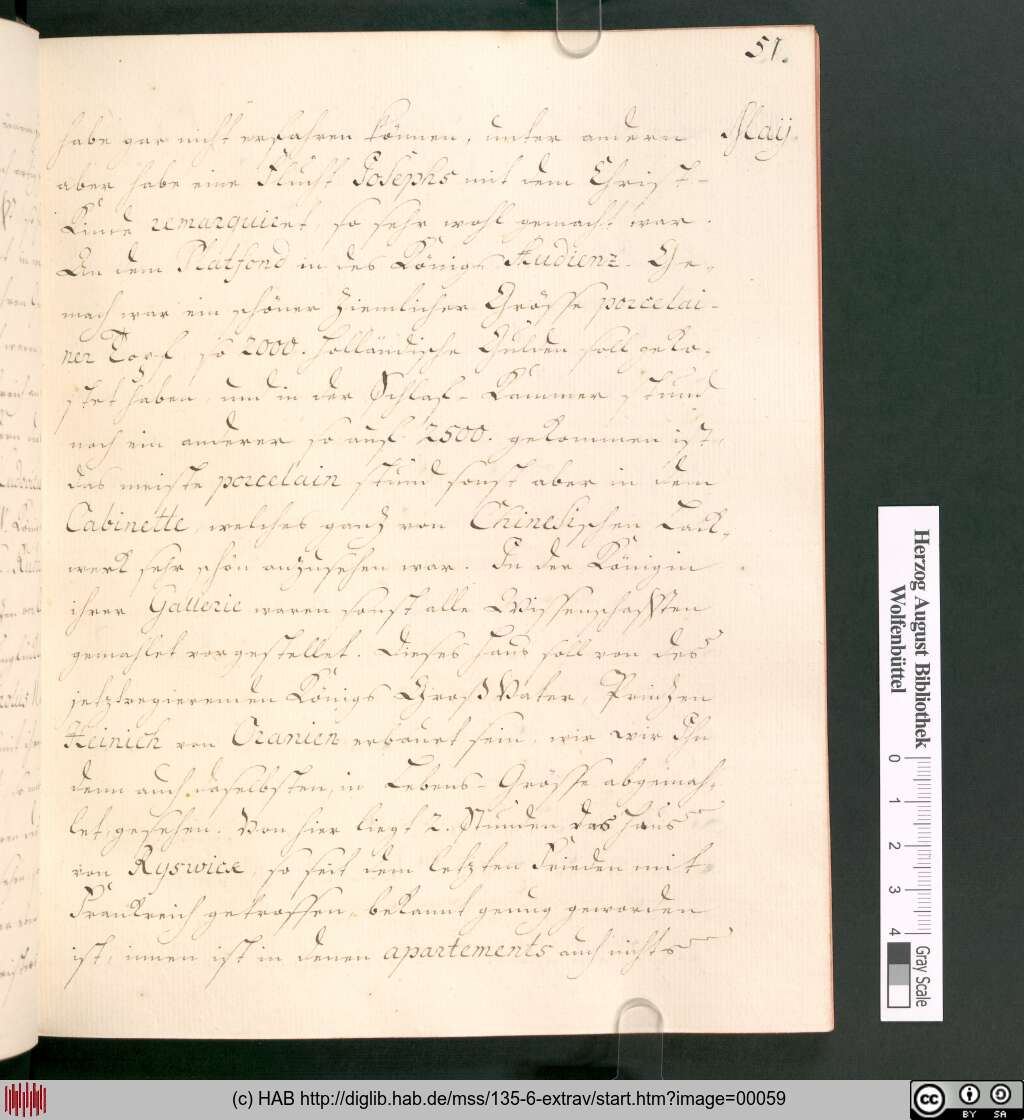 51.
May.
habe gar nicht erfahren können, unter andern
aber habe eine Flucht Josephs mit dem Christ-
Kinde remarquiret, so sehr wohl gemacht war.
An dem Platfond in des Königs Audienz-Ge-
mach war ein schöner ziemlicher Grösse porcelai-
ner Topf, so 2000. Holländische Gulden soll geko-
stet haben, und in der Schlaf-Kammer stund
noch ein anderer so auf 2500. gekommen ist,
das meiste porcelain stund sonst aber in dem
Cabinette, welches ganz von Chinesischen Lack-
werk sehr schön anzusehen war. In der Königin
ihrer Gallerie waren sonst alle Wissenschafften
gemahlet vorgestellet. Dieses Haus soll von des
jetztregierenden Königs Groß Vater, Printzen
Heinich von Oranien erbauet sein, wie wir Ihn
denn auch daselbsten, in Lebens-Grösse abgemah-
let, gesehen. Von hier liegt 2. Stunden das Haus
von Ryswick, so seit dem letzten Frieden mit
Franckreich getroffen, bekannt genug geworden
ist, innen ist in denen apartements auch nichts
Herzog August Bibliothek
Wolfenbüttel
0 1 2 3 4
Gray Scale
(c) HAB http://diglib.hab.de/mss/135-6-extrav/start.htm?image=00059
cc BY SA